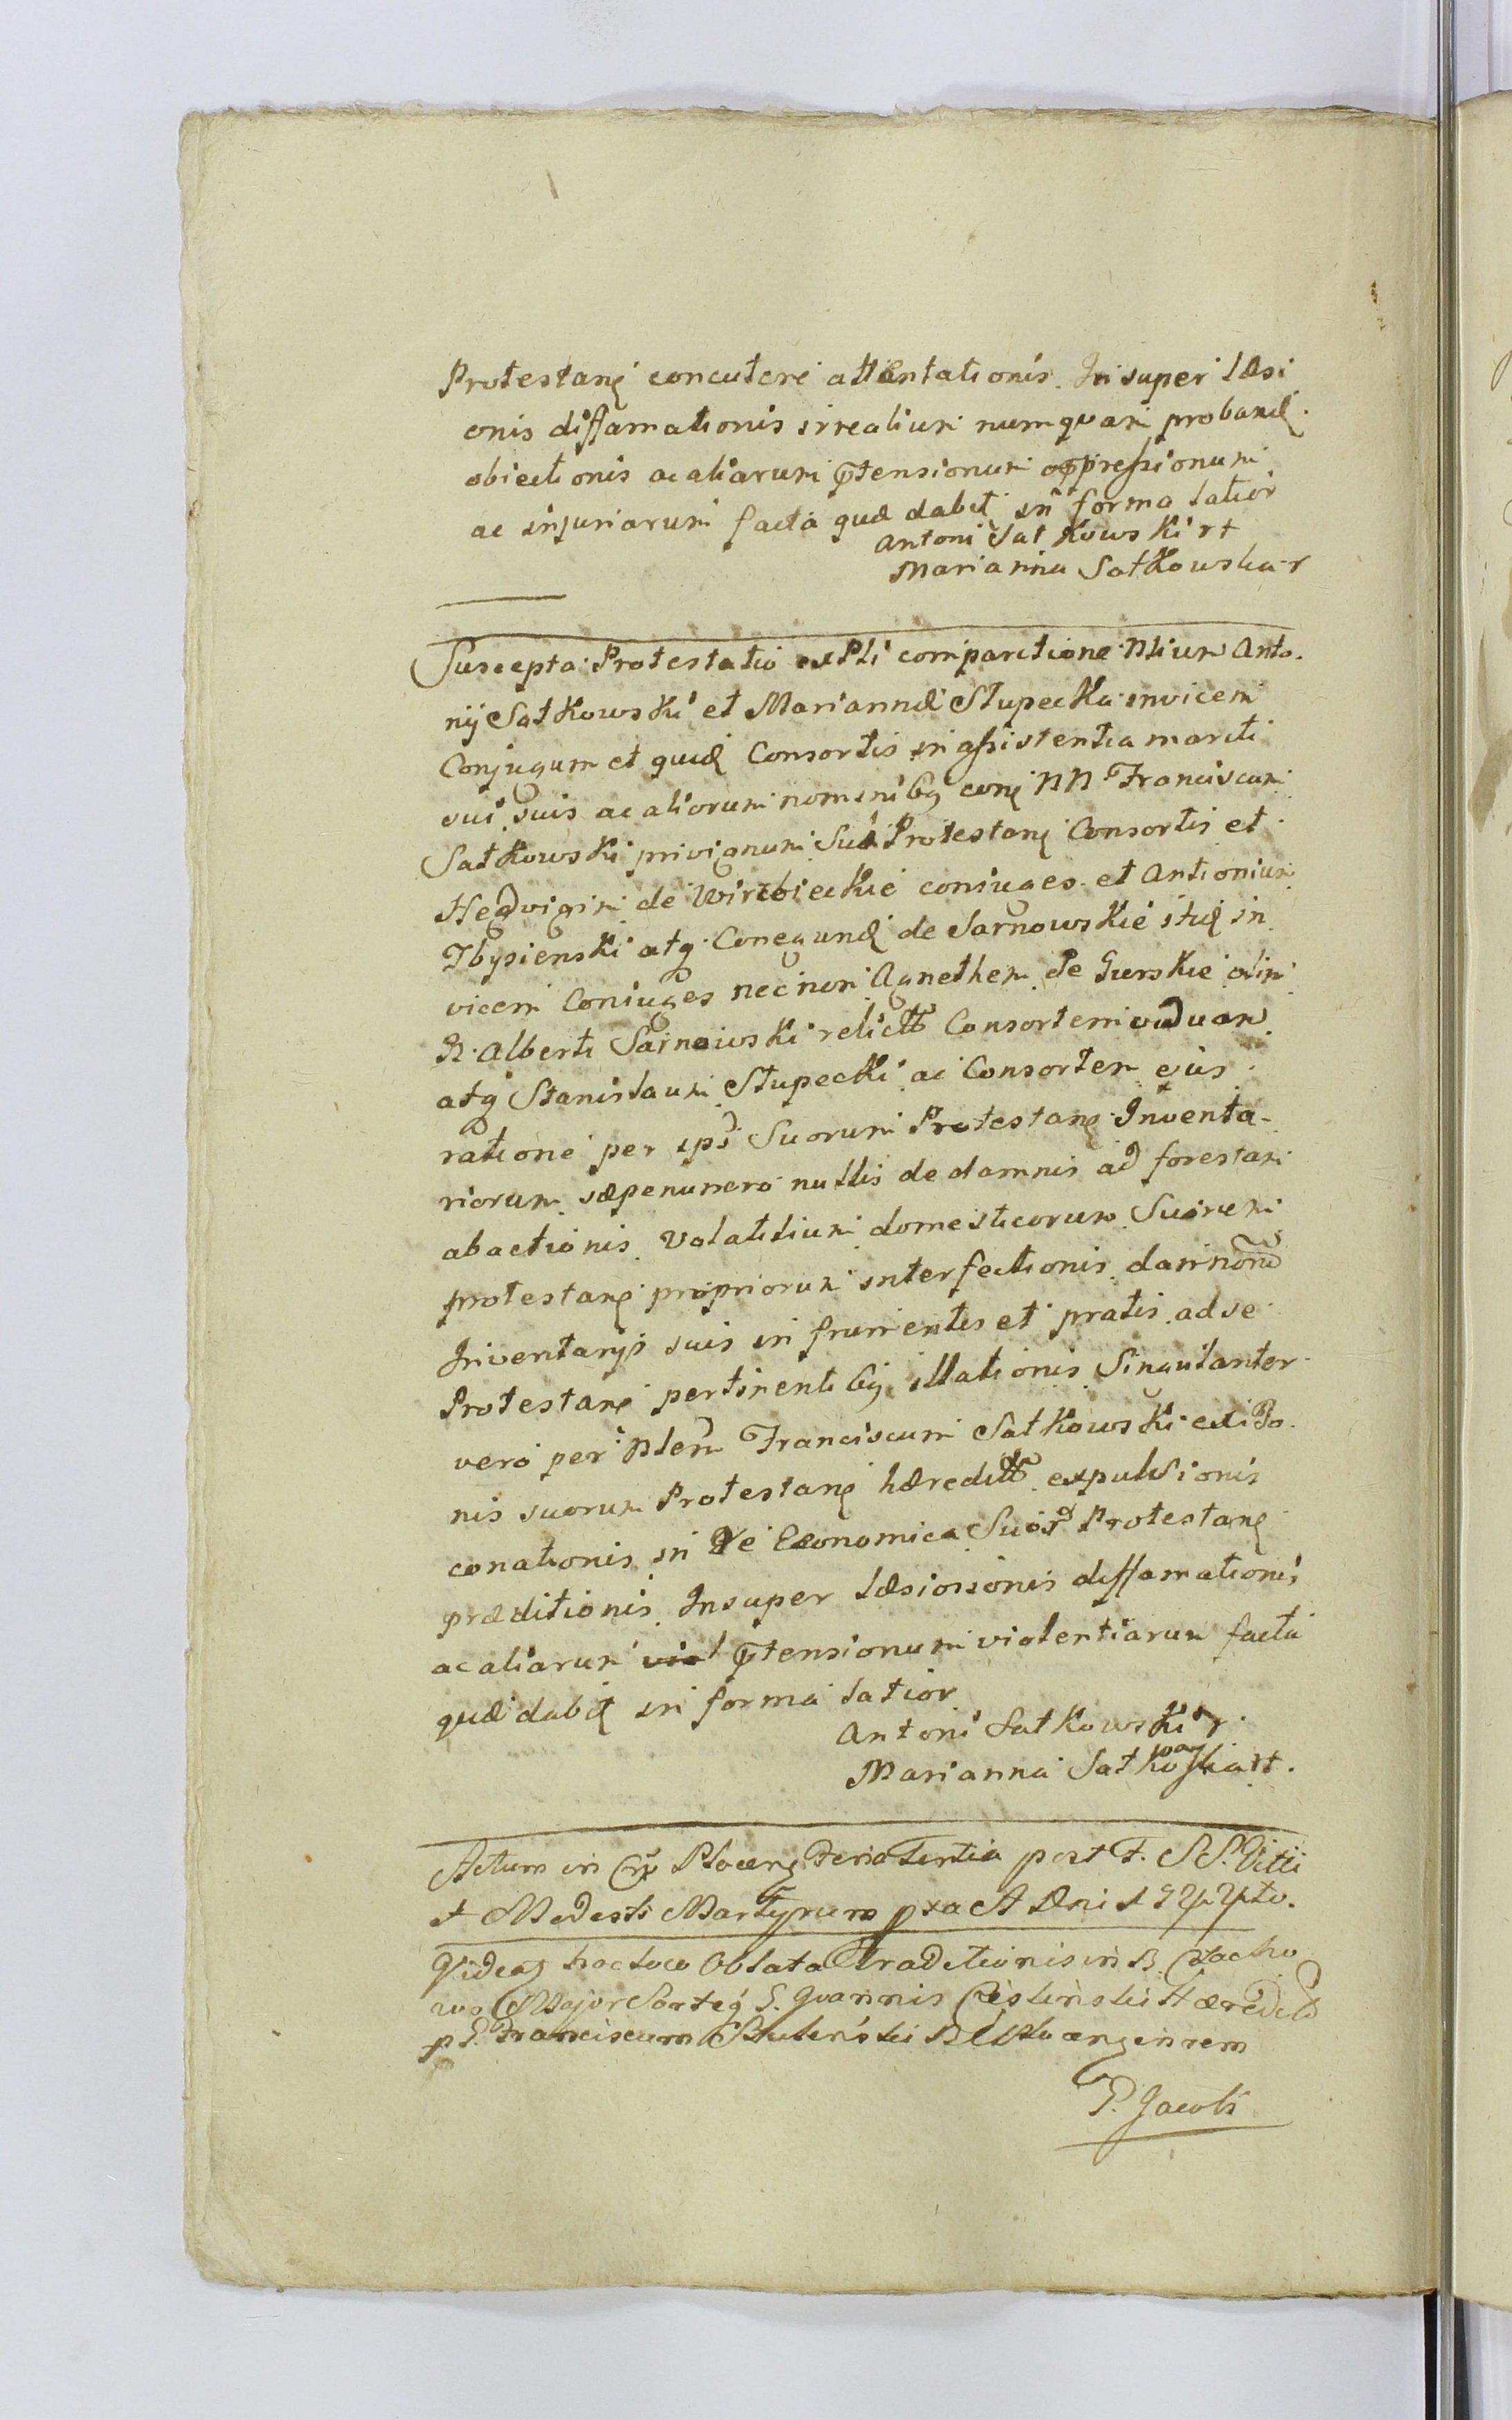 Protestanꝭ concutere attentationis. Insuper læsi
onis diffamationis irrealium numquam proband.
obiectionis ac aliarum p̄tensionum oppressionum
ac injuriarum facta quæ dabit in forma latior
Antoni Satkowski r +
Marianna Satkowska r
Suscepta Protestatio ex Pti comparitione Nlium Anto-
nij Satkowski et Mariannæ Słupecka invicem
Conjugum et quid Consortis in assistentia mariti
sui suis ac aliorum nominibꝫ conꝭ NN Franciscum
Satkowski privignum Suā Protestanꝭ Consortis et
Hedvigim de Wirzbieckie coniuges et Antonium
atq Conegund de Sarnowskie itid in
vicem Coniuges nec non Agnethem de Gurskie olim
N. Alberti Sarnowski relict Consortem viduam
atq Stanislaum Słupecki ac Consortem ejus
ratione per ips Suorum Protestanꝭ Inventa-
riorum sæpenumero nullis de damnis ad forestam
abactionis Volatilium domesticorum Suorum
protestanꝭ propriorum interfectionis damnorū
Inventarijs suis in frumentis et pratis ad se
Protestanꝭ pertinentibꝫ illationis Singulariter
vero per Nlem Franciscum Satkowski ex Bo-
nis suorum Protestanꝭ hæredit expulsionis
conationis in Re Economica Suor Protestanꝭ
præditionis Insuper læsiosionis diffamationis
ac aliarum viol p̄tensionum violentiarum facta
quæ dabit in forma latior
Antoni Satkowski r
Marianna Satkowska rt.
Actum in Crii Plocenꝭ Feria Tertia post F. SS. Vitti
et Modesti Martyrum pxa A Dni 1744to.
Videat hoc loco Oblata Traditionis in B.
wo Major Sorteq G. Joannis Hæredit
p G. Franciscum Plocengensem
P. Jacobi